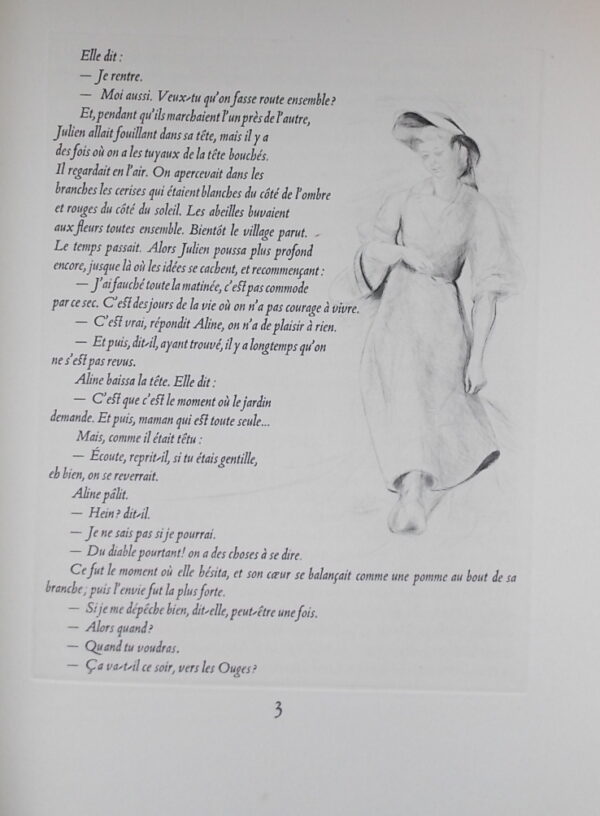 Elle dit :
— Je rentre.
— Moi aussi. Veux-tu qu'on fasse route ensemble?
Et, pendant qu'ils marchaient l'un près de l'autre,
Julien allait fouillant dans sa tête, mais il y a
des fois où on a les tuyaux de la tête bouchés.
Il regardait en l'air. On apercevait dans les
branches les cerises qui étaient blanches du côté de l'ombre
et rouges du côté du soleil. Les abeilles buvaient
aux fleurs toutes ensemble. Bientôt le village parut.
Le temps passait. Alors Julien poussa plus profond
encore, jusque là où les idées se cachent, et recommençant :
— J'ai fauché toute la matinée, c'est pas commode
par ce sec. C'est des jours de la vie où on n'a pas courage à vivre.
— C'est vrai, répondit Aline, on n'a de plaisir à rien.
— Et puis, dit-il, ayant trouvé, il y a longtemps qu'on
ne s'est pas revus.
Aline baissa la tête. Elle dit :
— C'est que c'est le moment où le jardin
demande. Et puis, maman qui est toute seule...
Mais, comme il était têtu :
— Écoute, reprit-il, si tu étais gentille,
eh bien, on se reverrait.
Aline pâlit.
— Hein? dit-il.
— Je ne sais pas si je pourrai.
— Du diable pourtant! on a des choses à se dire.
Ce fut le moment où elle hésita, et son cœur se balançait comme une pomme au bout de sa
branche; puis l'envie fut la plus forte.
— Si je me dépêche bien, dit-elle, peut-être une fois.
— Alors quand?
— Quand tu voudras.
— Ça va-t-il ce soir, vers les Ouges?
3